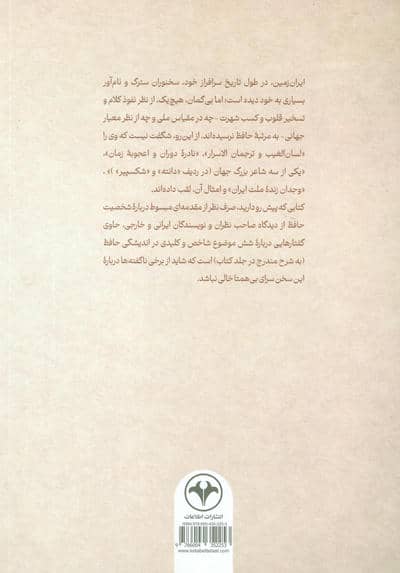 ایران‌زمین، در طول تاریخ سرافراز خود، سخنوران سترگ و نام‌آور
بسیاری به خود دیده است؛ اما بی‌گمان، هیچ‌یک، از نظر نفوذ کلام و
تسخیر قلوب و کسب شهرت - چه در مقیاس ملی و چه از نظر معیار
جهانی - به مرتبهٔ حافظ نرسیده‌اند. از این‌رو، شگفت نیست که وی را
«لسان‌الغیب و ترجمان الاسرار»، «نادرهٔ دوران و اعجوبهٔ زمان»،
«یکی از سه شاعر بزرگ جهان (در ردیف «دانته» و «شکسپیر»)»،
«وجدان زندهٔ ملت ایران» و امثال آن، لقب داده‌اند.
کتابی که پیش رو دارید، صرف نظر از مقدمه‌ای مبسوط دربارهٔ شخصیت
حافظ از دیدگاه صاحب نظران و نویسندگان ایرانی و خارجی، حاوی
گفتارهایی دربارهٔ شش موضوع شاخص و کلیدی در اندیشگی حافظ
(به شرح مندرج در جلد کتاب) است که شاید از برخی ناگفته‌ها دربارهٔ
این سخن سرای بی‌همتا خالی نباشد.
انتشارات اطلاعات